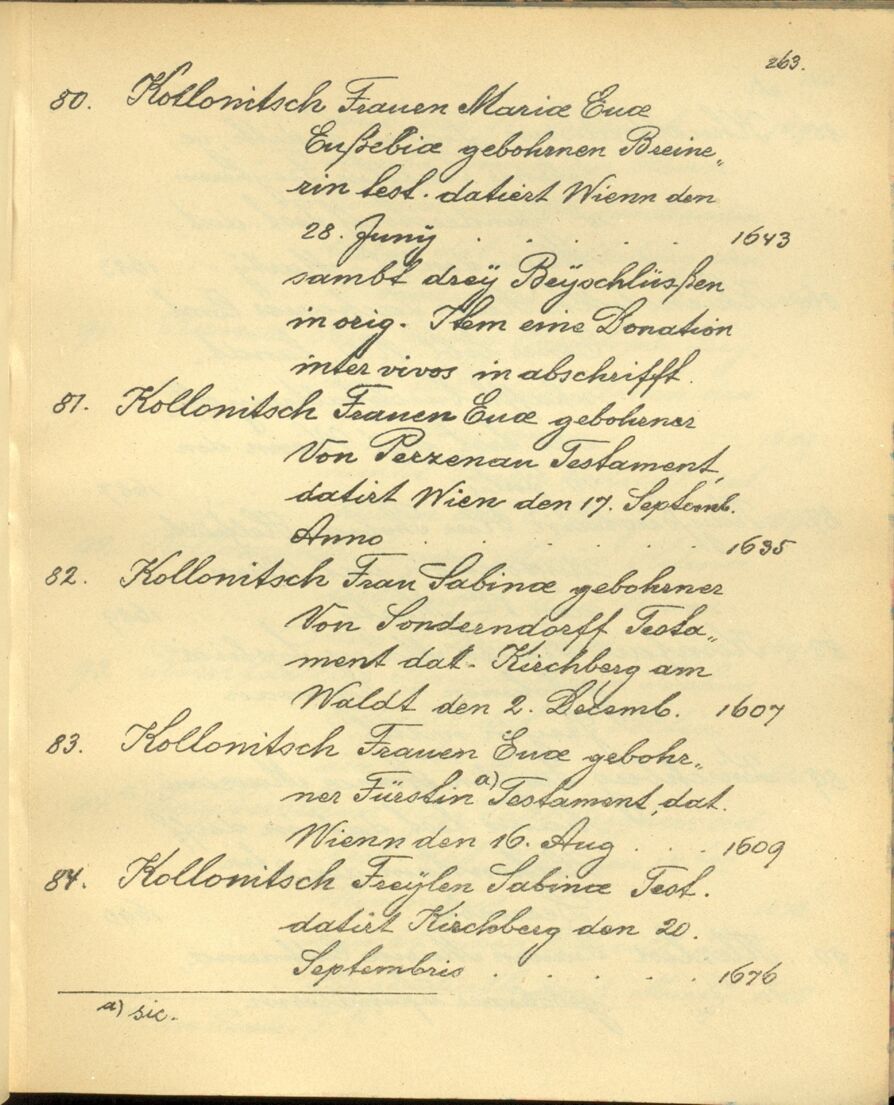 263.
80. Kollonitsch Frauen Mariæ Euæ
Eußebiæ gebohrnen Breine„
rin test. datiert Wienn den
28. Juny . . . . . 1643
sambt dreÿ Beÿschlüsßen
in orig. Item eine Donation
inter vivos in abschrifft.
81. Kollonitsch Frauen Euæ gebohrner
Von Perzenau Testament,
datirt Wien den 17. Septemb.
Anno . . . . . . 1635
82. Kollonitsch Frau Sabinæ gebohrner
Von Sonderndorff Testa„
ment dat. Kirchberg am
Waldt den 2. Decemb. 1607
83. Kollonitsch Frauen Euæ gebohr„
ner Fürstin a) Testament, dat.
Wienn den 16. Aug . . . 1609
84. Kollonitsch Freÿlen Sabinæ Test.
datirt Kirchberg den 20.
Septembris . . . . . 1676
a) sic.